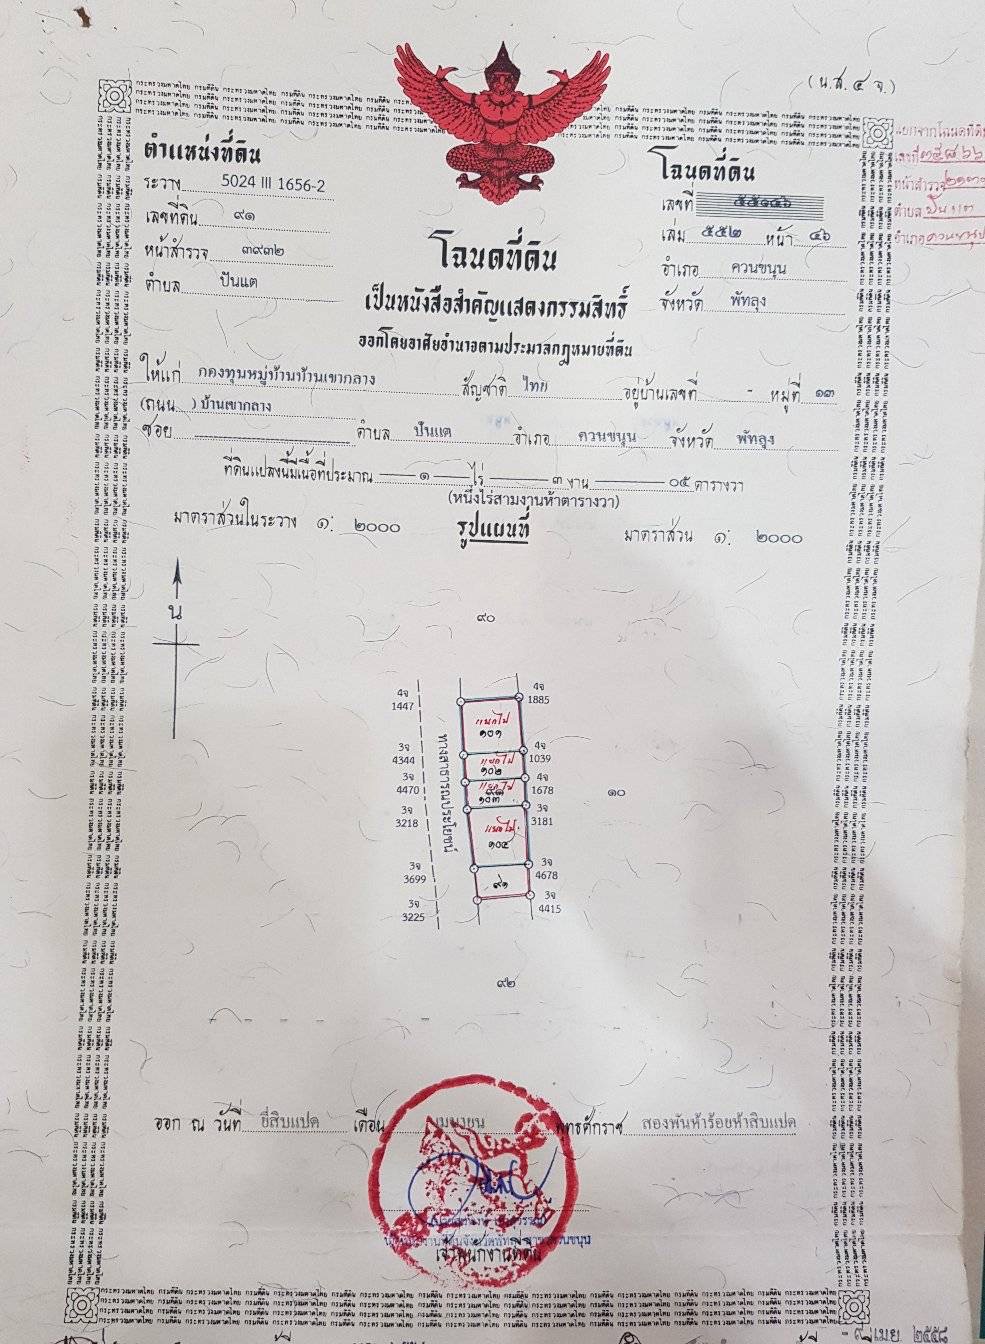 (น.ส.๔ จ.)
ตำแหน่งที่ดิน
ระวาง 5024 III 1656-2
เลขที่ดิน ๙๑
หน้าสำรวจ ๓๙๓๒
ตำบล ปันแต
โฉนดที่ดิน
เลขที่ ๕๕๑๔๖
เล่ม ๕๕๒ หน้า ๔๖
อำเภอ ควนขนุน
จังหวัด พัทลุง
แยกจากโฉนดที่ดิน
เลขที่
หน้าสำรวจ
ตำบล ปันแต
อำเภอ ควนขนุน
โฉนดที่ดิน
เป็นหนังสือสำคัญแสดงกรรมสิทธิ์
ออกโดยอาศัยอำนาจตามประมวลกฎหมายที่ดิน
ให้แก่ กองทุนหมู่บ้านบ้านเขากลาง สัญชาติ ไทย อยู่บ้านเลขที่ - หมู่ที่ ๑๓
(ถนน ) บ้านเขากลาง
ซอย ตำบล ปันแต อำเภอ ควนขนุน จังหวัด พัทลุง
ที่ดินแปลงนี้มีเนื้อที่ประมาณ ๑ ไร่ ๓ งาน ๐๕ ตารางวา
(หนึ่งไร่สามงานห้าตารางวา)
มาตราส่วนในระวาง ๑: ๒๐๐๐ รูปแผนที่ มาตราส่วน ๑: ๒๐๐๐
น
๙๐
4จ
1447
4จ
1885
แยกไป
๑๐๑
3จ
4344
4จ
1039
แยกไป
๑๐๒
3จ
4470
4จ
1678
แยกไป
๙๑
๑๐๓
๑๐
3จ
3218
3จ
3181
แยกไป
๑๐๔
ทางสาธารณประโยชน์
3จ
3699
3จ
4678
๙๑
3จ
3225
3จ
4415
๙๒
ออก ณ วันที่ ยี่สิบแปด เดือน เมษายน พุทธศักราช สองพันห้าร้อยห้าสิบแปด
เจ้าพนักงานที่ดิน
๒๕๕๘